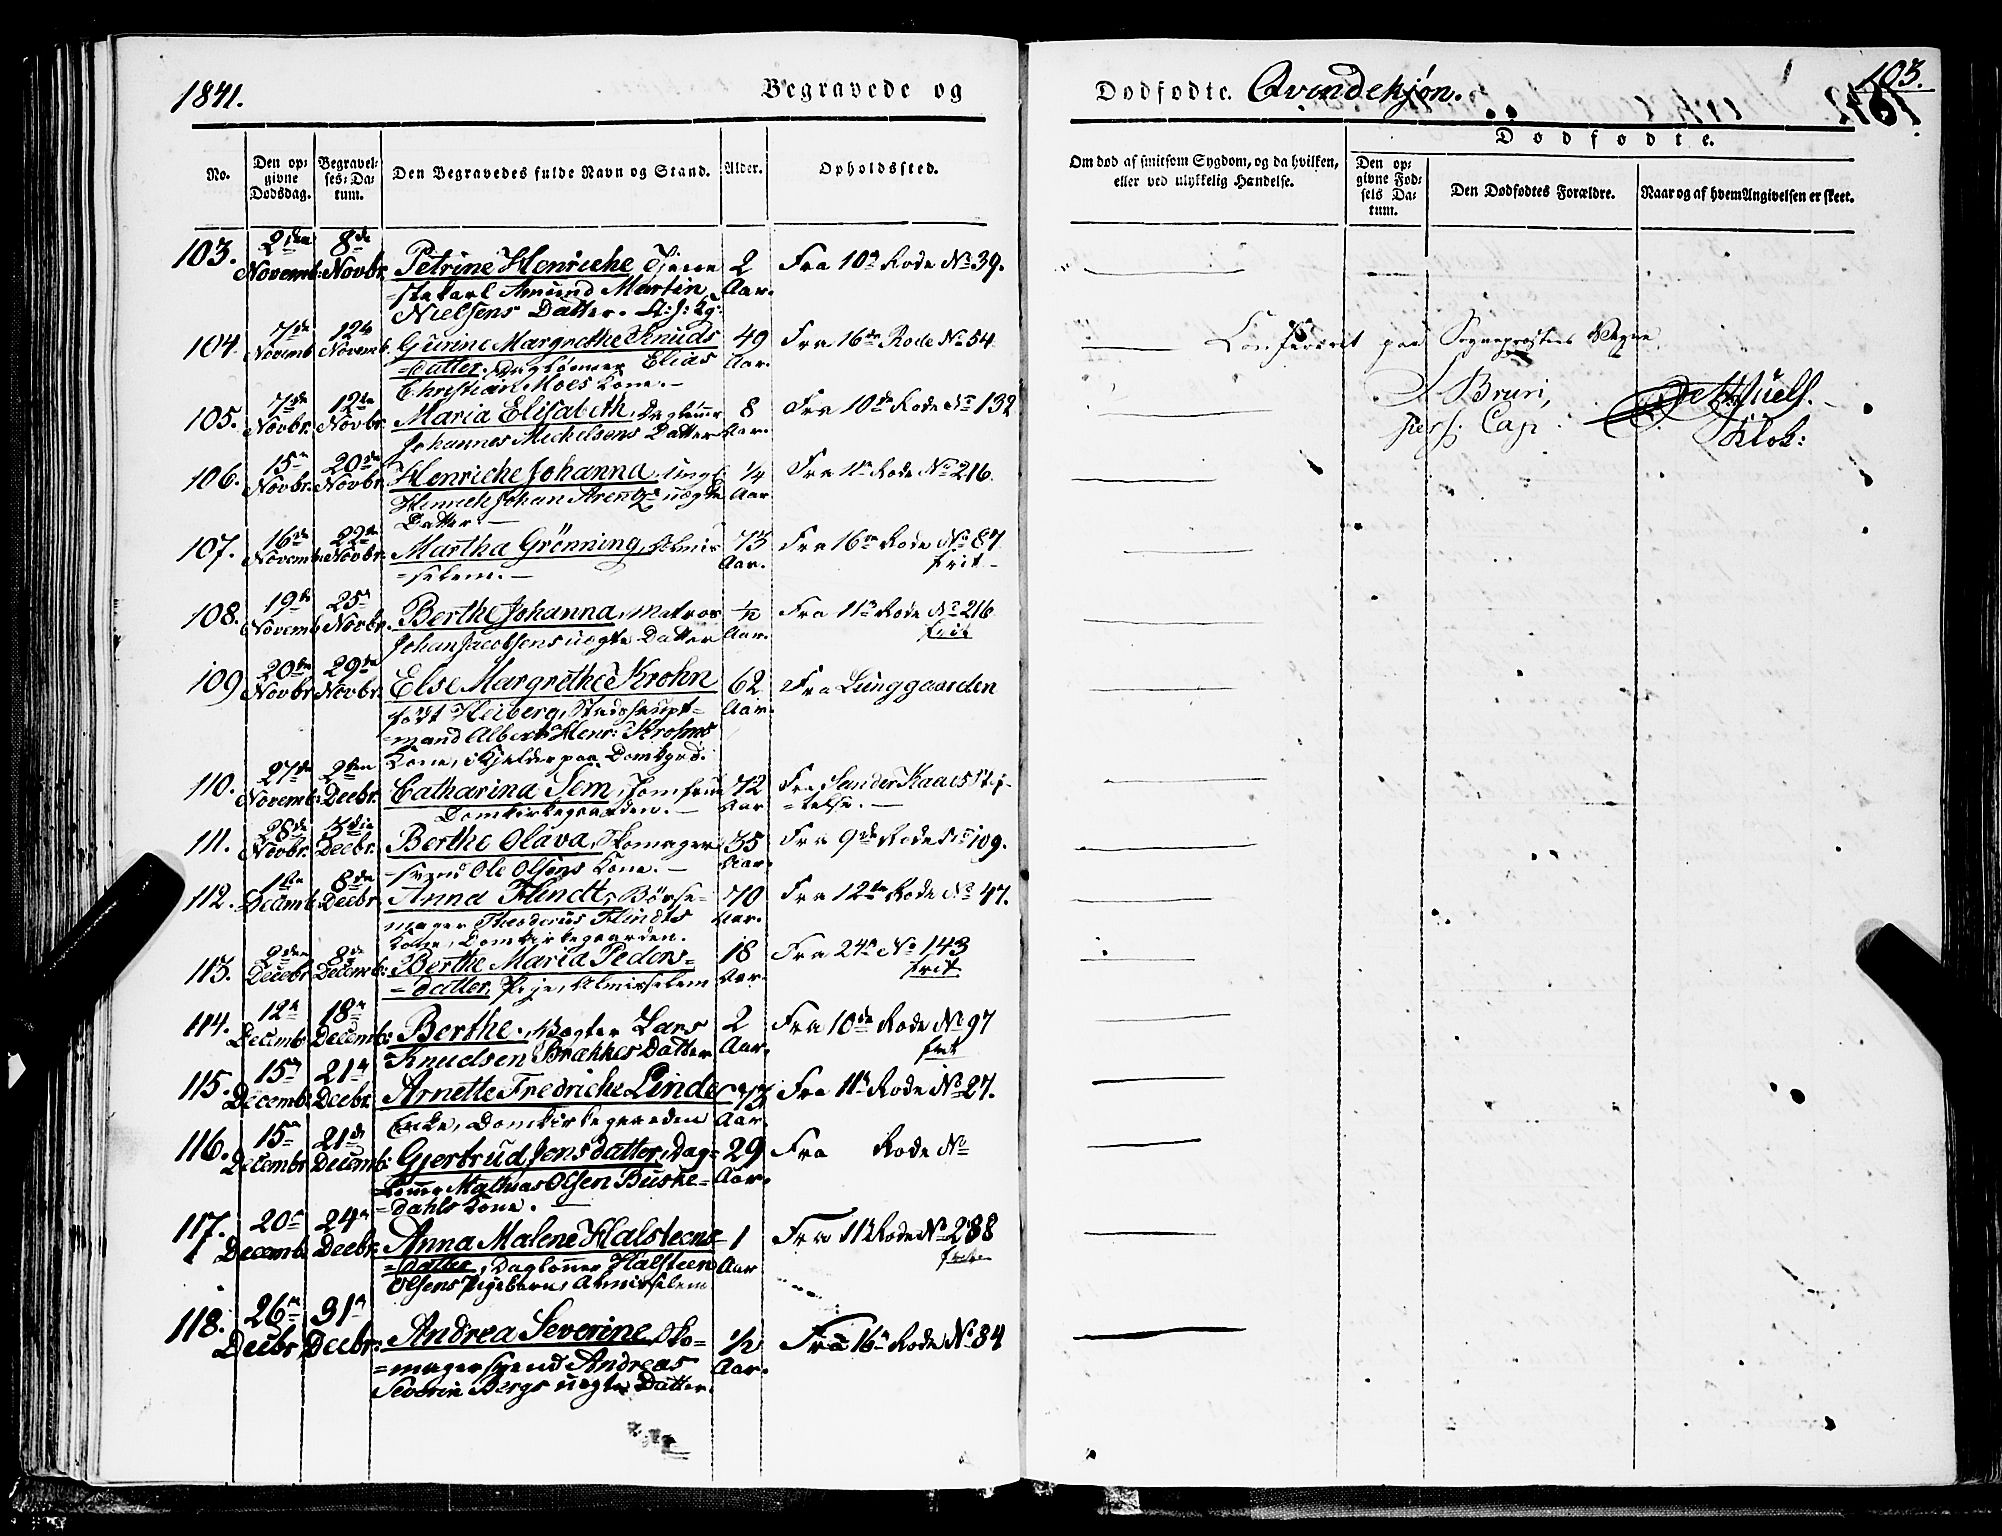 1841.
Begravede og
Dødfødte. Qvindekjøn.
103.
No.
Den opgivne Dødsdag.
Begravelses-Datum.
Den Begravedes fulde Navn og Stand.
Alder.
Opholdssted.
Om død af smitsom Sygdom, og da hvilken, eller ved ulykkelig Hændelse.
Dødfødte.
Den opgivne Fødsels Datum.
Den Dødfødtes Forældre.
Naar og af hvem Angivelsen er skeet.
103. 2den Novemb: 8de Novbr. Petrine Henriche, Tjene 2 Aar. Fra 10n Rode No 39.
=stekarl Amund Martin
Nielsens Datter.
104. 7de Novemb 12te Novemb. Gurine Margrethe Knuds 49 Aar. Fra 16de Rode No 54
=datter, Daglønner Elias
Christian Moes Kone. -
105. 7de Novbr. 12te Novbr. Maria Elisabeth, Daglønner 8 Aar. Fra 10de Rode No 132
Johannes Michelsens Datter
106. 15n Novbr. 20de Novbr. Henriche Johanna, Ungk. 1/4 Aar Fra 11n Rode No 216.
Henrich Johan Arentz uægte
Datter. -
107. 16de Novemb. 22de Novbr. Martha Grønning, Almis 73 Aar. Fra 16n Rode No 87
=selem. - frit -
108. 19de Novemb 25n Novbr. Berthe Johanna, Matros 1/2 Aar. Fra 11n Rode No 216
Johan Jacobsens uægte Datter frit
109 20de Novbr 29de Novbr. Else Margrethe Krohn 62 Aar. Fra Lunggaarden
født Heiberg, Stadshaupt=
=mand Albert Henr: Krohns
Kone, i Kjelder paa Domkgrd.
110. 27de Novemb: 2den Decbr. Catharina Sem, Jomfrue 72 Aar Fra Sander Kaaes Stif=
Domkirkegaarden. - =telse. -
111. 28de Novbr. 3die Decbr. Berthe Olava, Skomager 35 Aar. Fra 9de Rode No 109.
=svend Ole Olsens Kone. -
112. 1te Decemb 8de Decbr. Anna Flindt, Børse= 70 Aar. Fra 12te Rode No 47.
mager Theodorus Flindts
Kone, Domkirkegaarden.
113. 2den Decbr 8de Decemb: Berthe Maria Peders= 18 Aar. Fra 24n No 143
=datter, Pige, Almisselem frit
114. 12n Decemb 18n Decemb: Berthe, Vogter Lars 2 Aar. Fra 10de Rode No 97
Knudsen Brækkes Datter frit
115. 15n Decemb 21n Decbr. Arnette Fredriche Linde 73 Aar. Fra 11n Rode No 27.
Enke, Domkirkegaarden
116. 15n Decembr 21de Decemb: Gjertrud Jensdatter, Dag= 29 Aar. Fra Rode No
lønner Mathias Olsen Buske=
=dahls Kone.
117. 20n Decemb 24n Decbr: Anna Malene Halsteens 1 Aar Fra 11n Rode No 288
=datter, Daglønner Halsteen frit
Olsens Pigebarn, Almisselem
118. 26n Decbr 31n Decbr: Andrea Severine, Sko= 1/2 Aar. Fra 16n Rode No 84
=magersvend Andreas
Severin Bergs uægte Datter.
Confereret paa Sogneprestens Vegne
J Brun,
pers. Cap.
Klok: